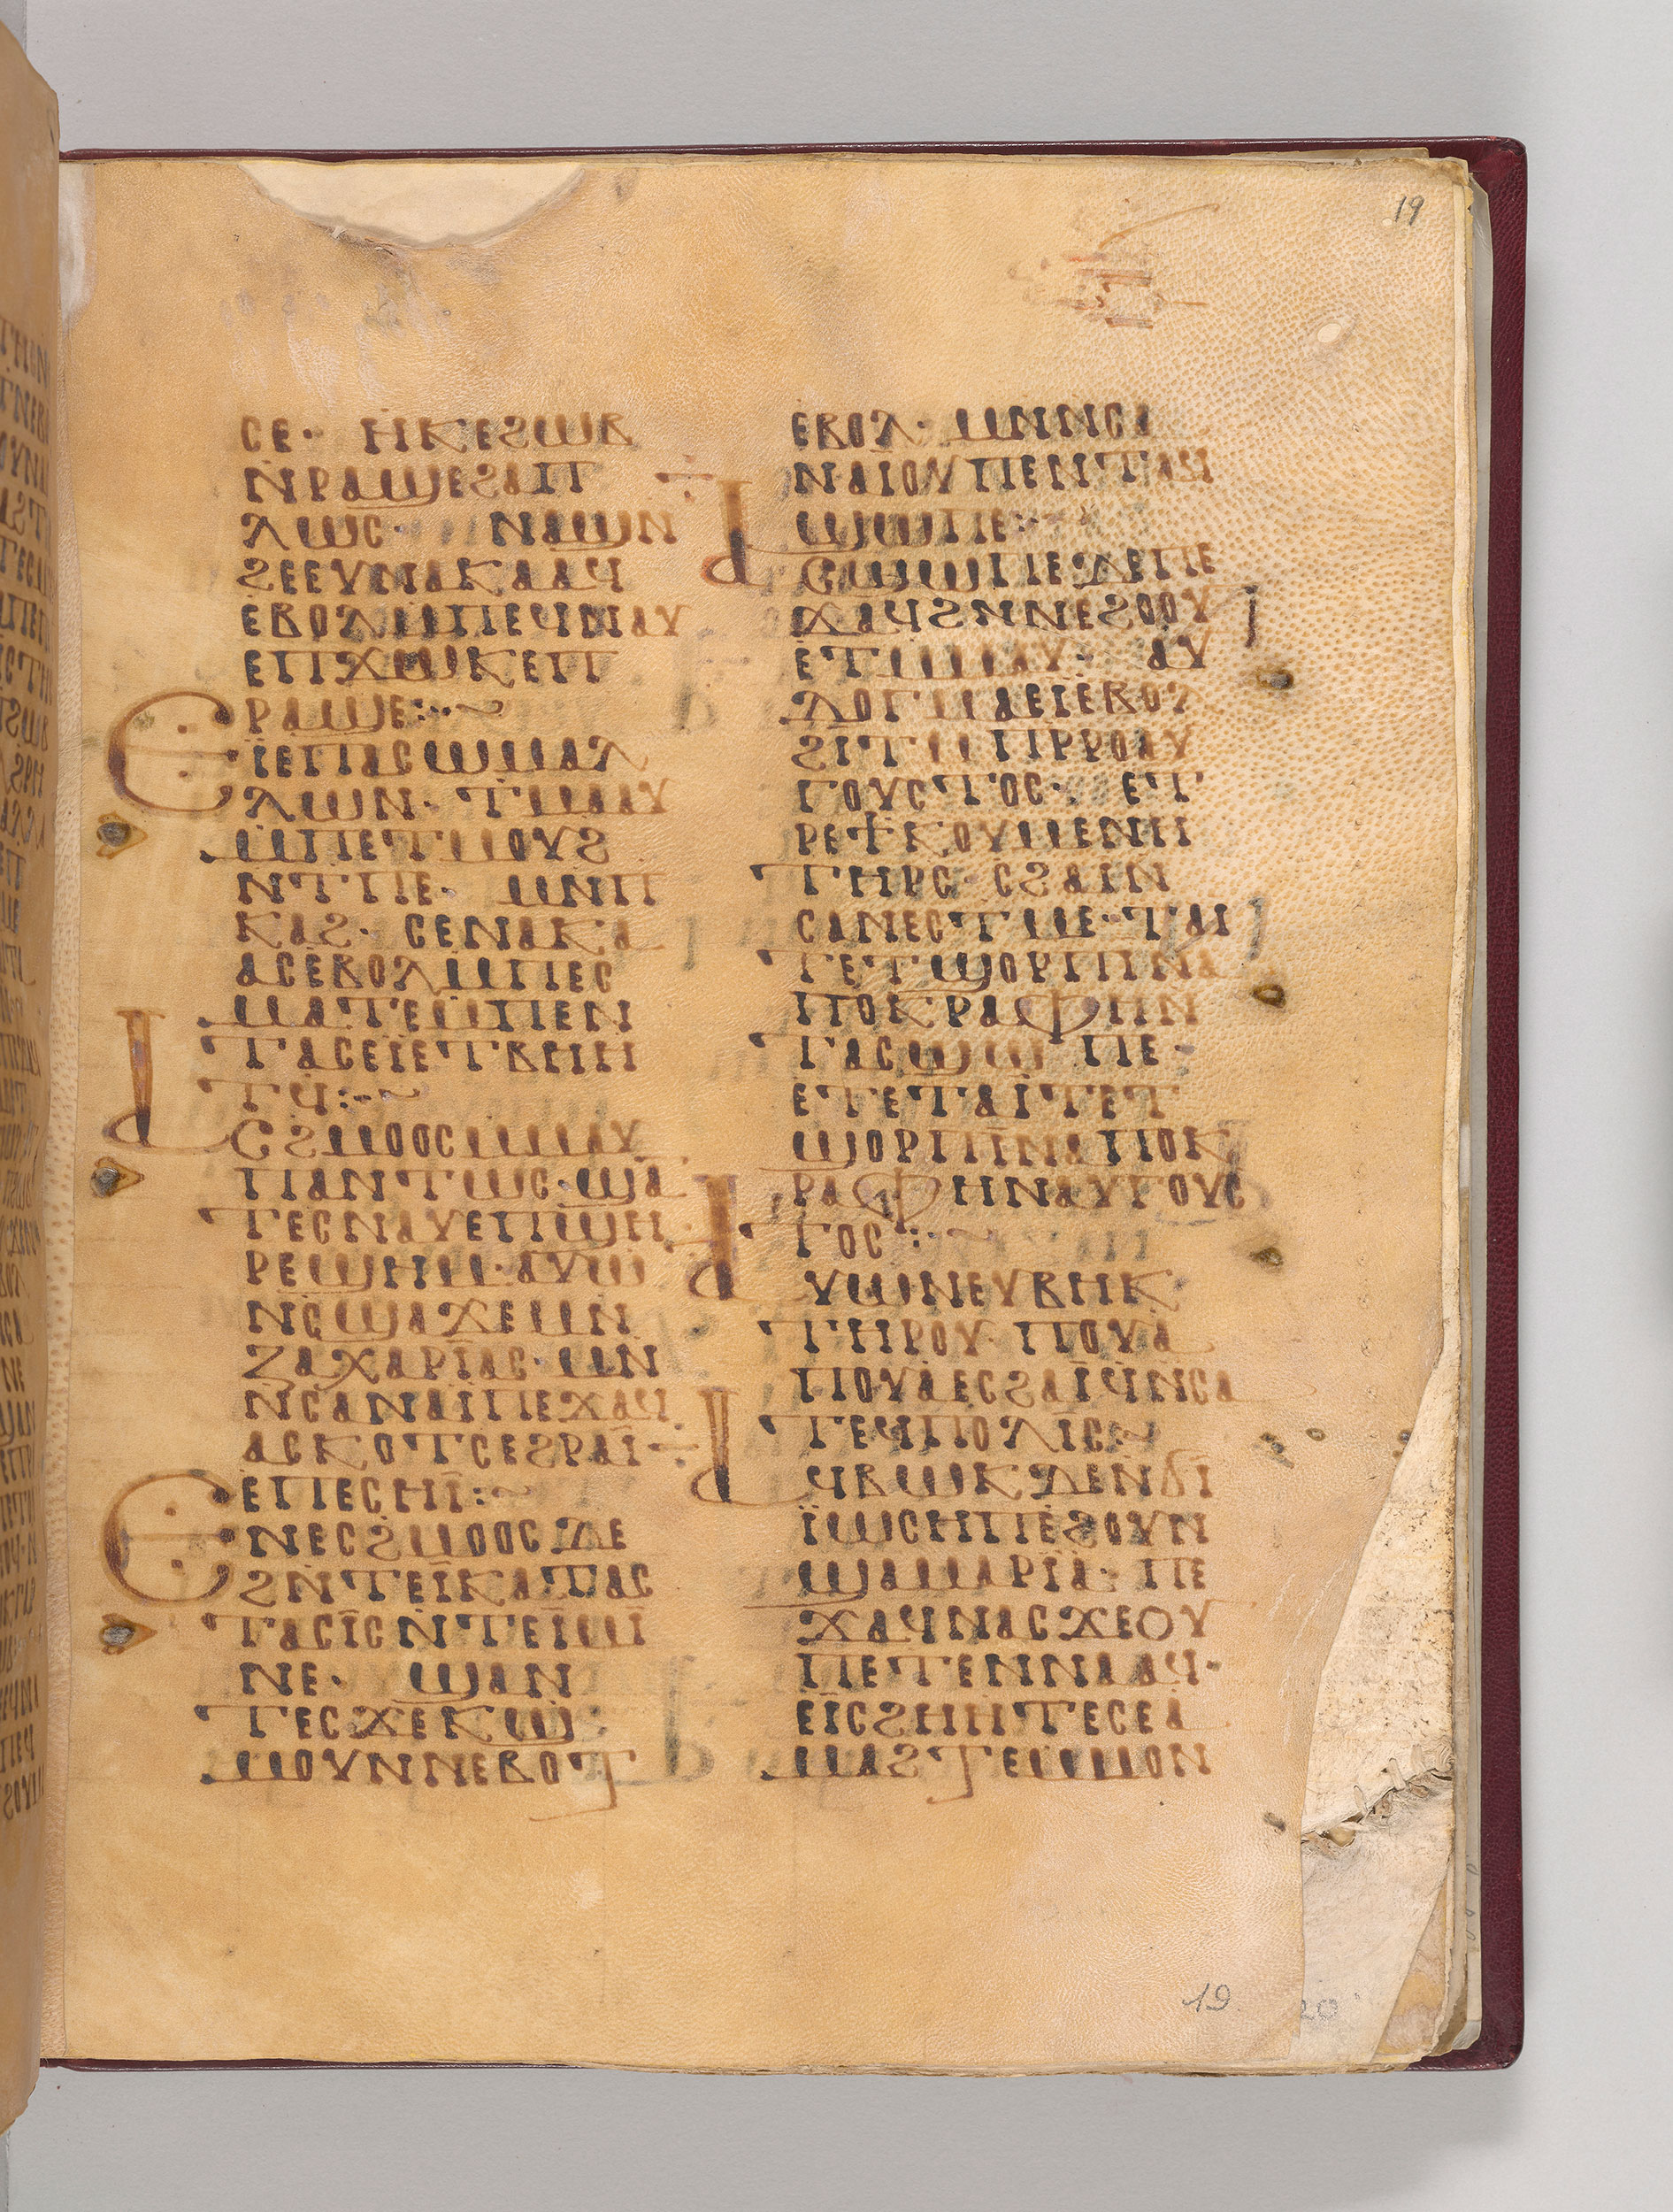 19
ⲥⲉ· ⲏⲕⲉϩⲱⲃ
ⲛⲣⲁϣⲉϩⲁⲡ
ⲗⲱⲥ· ⲛⲁϣⲛ
ϩⲉⲉⲩⲛⲁⲕⲁⲁϥ
ⲉⲃⲟⲗⲙⲡⲉϥⲙⲁⲩ
ⲉⲡϫⲱⲕⲉⲡ
ⲣⲁϣⲉ:·~
ⲉⲓⲉⲡⲁⲥⲱⲙⲁⲗ
ⲗⲱⲛ· ⲧⲙⲁⲁⲩ
ⲙⲡⲉⲧⲙⲟⲩϩ
ⲛⲧⲡⲉ· ⲙⲛⲡ
ⲕⲁϩ· ⲥⲉⲛⲁⲕⲁ
ⲁⲥⲉⲃⲟⲗⲙⲡⲉⲥ
ⲙⲁⲧⲉⲙⲡⲉⲛ
ⲧⲁⲥⲉⲓⲉⲧⲃⲏⲏ
ⲧϥ:·~
ⲁⲥϩⲙⲟⲟⲥⲙⲙⲁⲩ
ⲡⲁⲛⲧⲱⲥ·ϣⲁ
ⲧⲉⲥⲛⲁⲩⲉⲡϣⲏ
ⲣⲉϣⲏⲙ·ⲁⲩⲱ
ⲛⲥϣⲁϫⲉⲙⲛ
ⲍⲁⲭⲁⲣⲓⲁⲥ·ⲙⲛ
ⲛⲥⲁⲛⲁⲓⲡⲉϫⲁϥ
ⲁⲥⲕⲟⲧⲥⲉϩⲣⲁⲓ
ⲉⲡⲉⲥⲏⲓ:~
ⲉⲛⲉⲥϩⲙⲟⲟⲥⲇⲉ
ϩⲛⲧⲉⲓⲕⲁⲧⲁⲥ
ⲧⲁⲥⲓⲥⲛⲧⲉⲓⲙⲓ
ⲛⲉ· ϣⲁⲛ
ⲧⲉⲥϫⲉⲕϣ
ⲙⲟⲩⲛⲛⲉⲃⲟⲧ
ⲉⲃⲟⲗ· ⲙⲛⲛⲥⲁ
ⲛⲁⲓⲟⲩⲡⲉⲛⲧⲁϥ
ϣⲱⲡⲉ:~
ⲁⲥϣⲱⲡⲉⲇⲉⲡⲉ
ϫⲁϥϩⲛⲛⲉϩⲟⲟⲩ
ⲉⲧⲙⲙⲁⲩ· ⲁⲩ
ⲇⲟⲅⲙⲁⲉⲓⲉⲃⲟⲗ
ϩⲓⲧⲙⲡⲣⲣⲟⲁⲩ
ⲅⲟⲩⲥⲧⲟⲥ· ⲉⲧ
ⲣⲉϯⲕⲟⲩⲙⲉⲛⲏ
ⲧⲏⲣⲥ·ⲥϩⲁⲓⲛ
ⲥⲁⲛⲉⲥⲧⲙⲉ·ⲧⲁⲓ
ⲧⲉⲧϣⲟⲣⲡⲛⲁ
ⲡⲟⲕⲣⲁⲫⲏⲛ
ⲧⲁⲥϣⲱⲡⲉ·
ⲉⲧⲉⲧⲁⲓⲧⲉⲧ
ϣⲟⲣⲡⲛⲁⲡⲟⲕ
ⲣⲁⲫⲏⲛⲁⲩⲅⲟⲩⲥ
ⲧⲟⲥ:·~
ⲁⲩⲱⲛⲉⲩⲃⲏⲕ
ⲧⲏⲣⲟⲩ·ⲡⲟⲩⲁ
ⲡⲟⲩⲁⲉⲥϩⲁⲓϥⲛⲥⲁ
ⲧⲉϥⲡⲟⲗⲓⲥ:~
ⲁϥⲃⲱⲕⲇⲉⲛϭⲓ
ⲓⲱⲥⲏⲡⲉϩⲟⲩⲛ
ϣⲁⲙⲁⲣⲓⲁ· ⲡⲉ
ϫⲁϥⲛⲁⲥϫⲉⲟⲩ
ⲡⲉⲧⲉⲛⲛⲁⲁϥ·
ⲉⲓⲥϩⲏⲏⲧⲉⲥⲉⲁ
ⲙⲁϩⲧⲉⲙⲙⲟⲛ
19
20